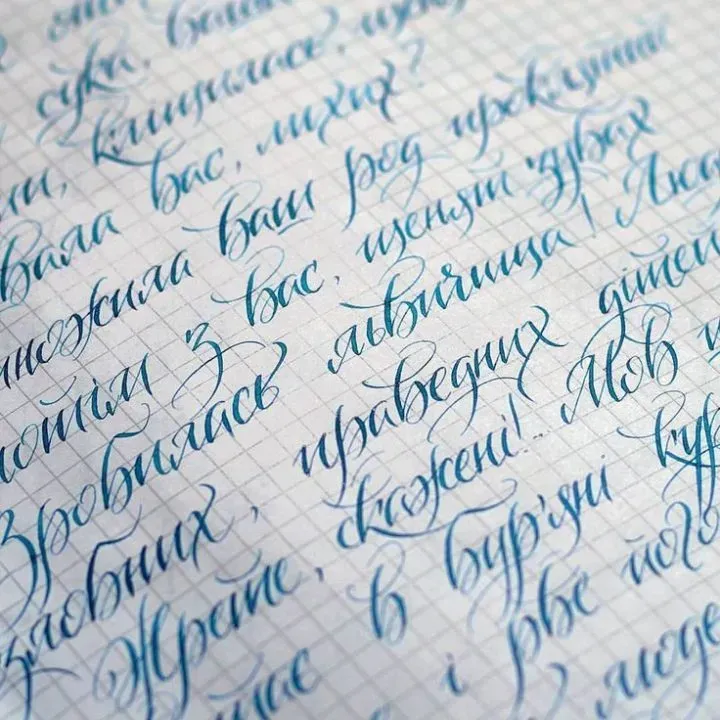 сука,
клищилась,
вала вас, лихих?
множила ваш род проклятий
потім з вас, щенят зубах
Зробилась львичища! Люд
злобних, праведних дітей
Жрете, скажені! Мов
в бур'яні кур
і рве його